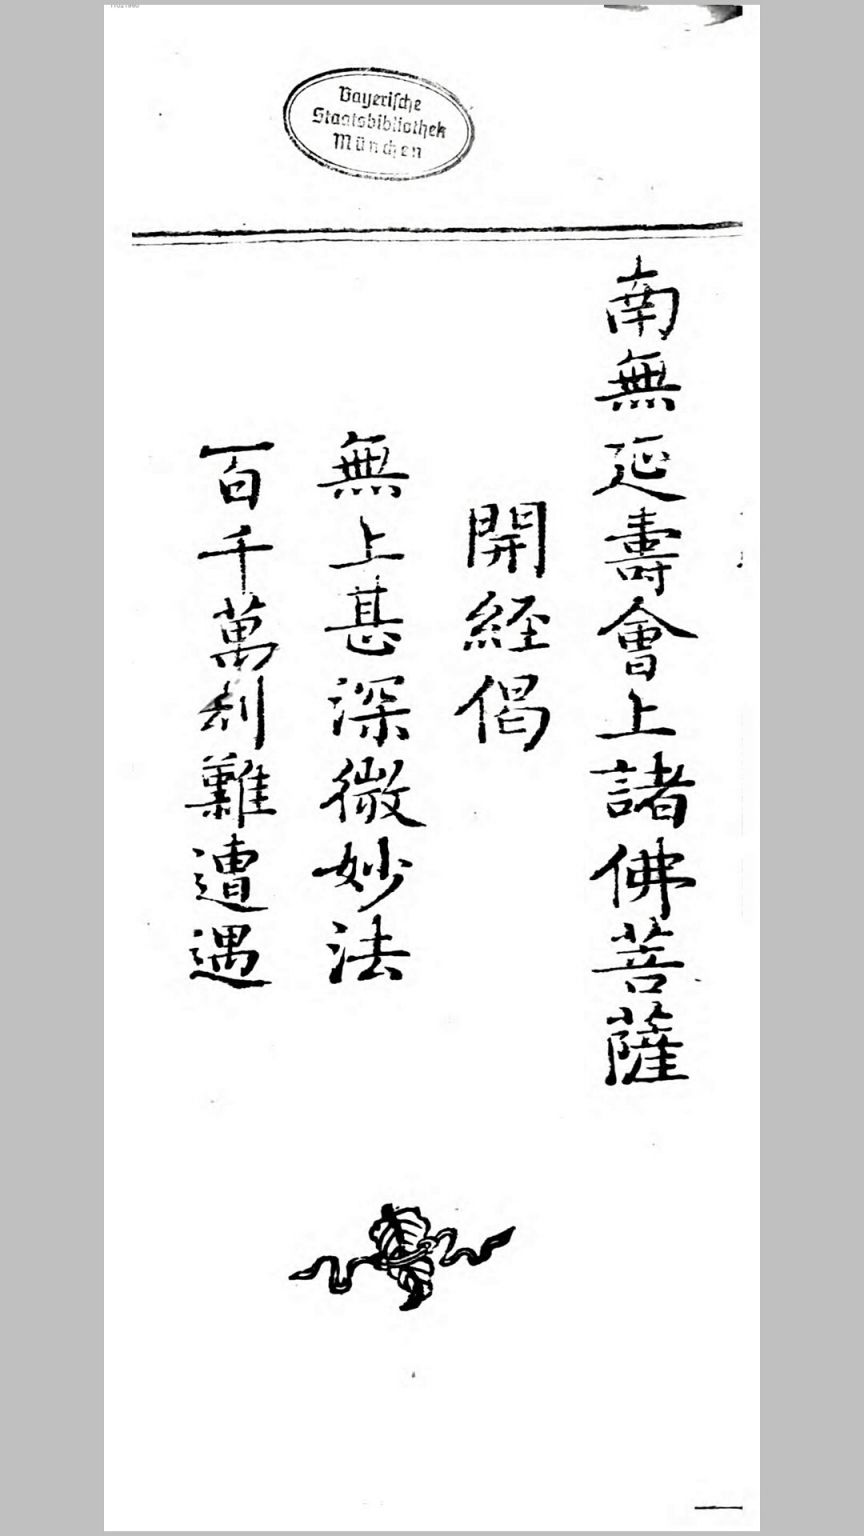 Bayerische
Staatsbibliothek
München
南無延壽會上諸佛菩薩
開經偈
無上甚深微妙法
百千萬刼難遭遇
一